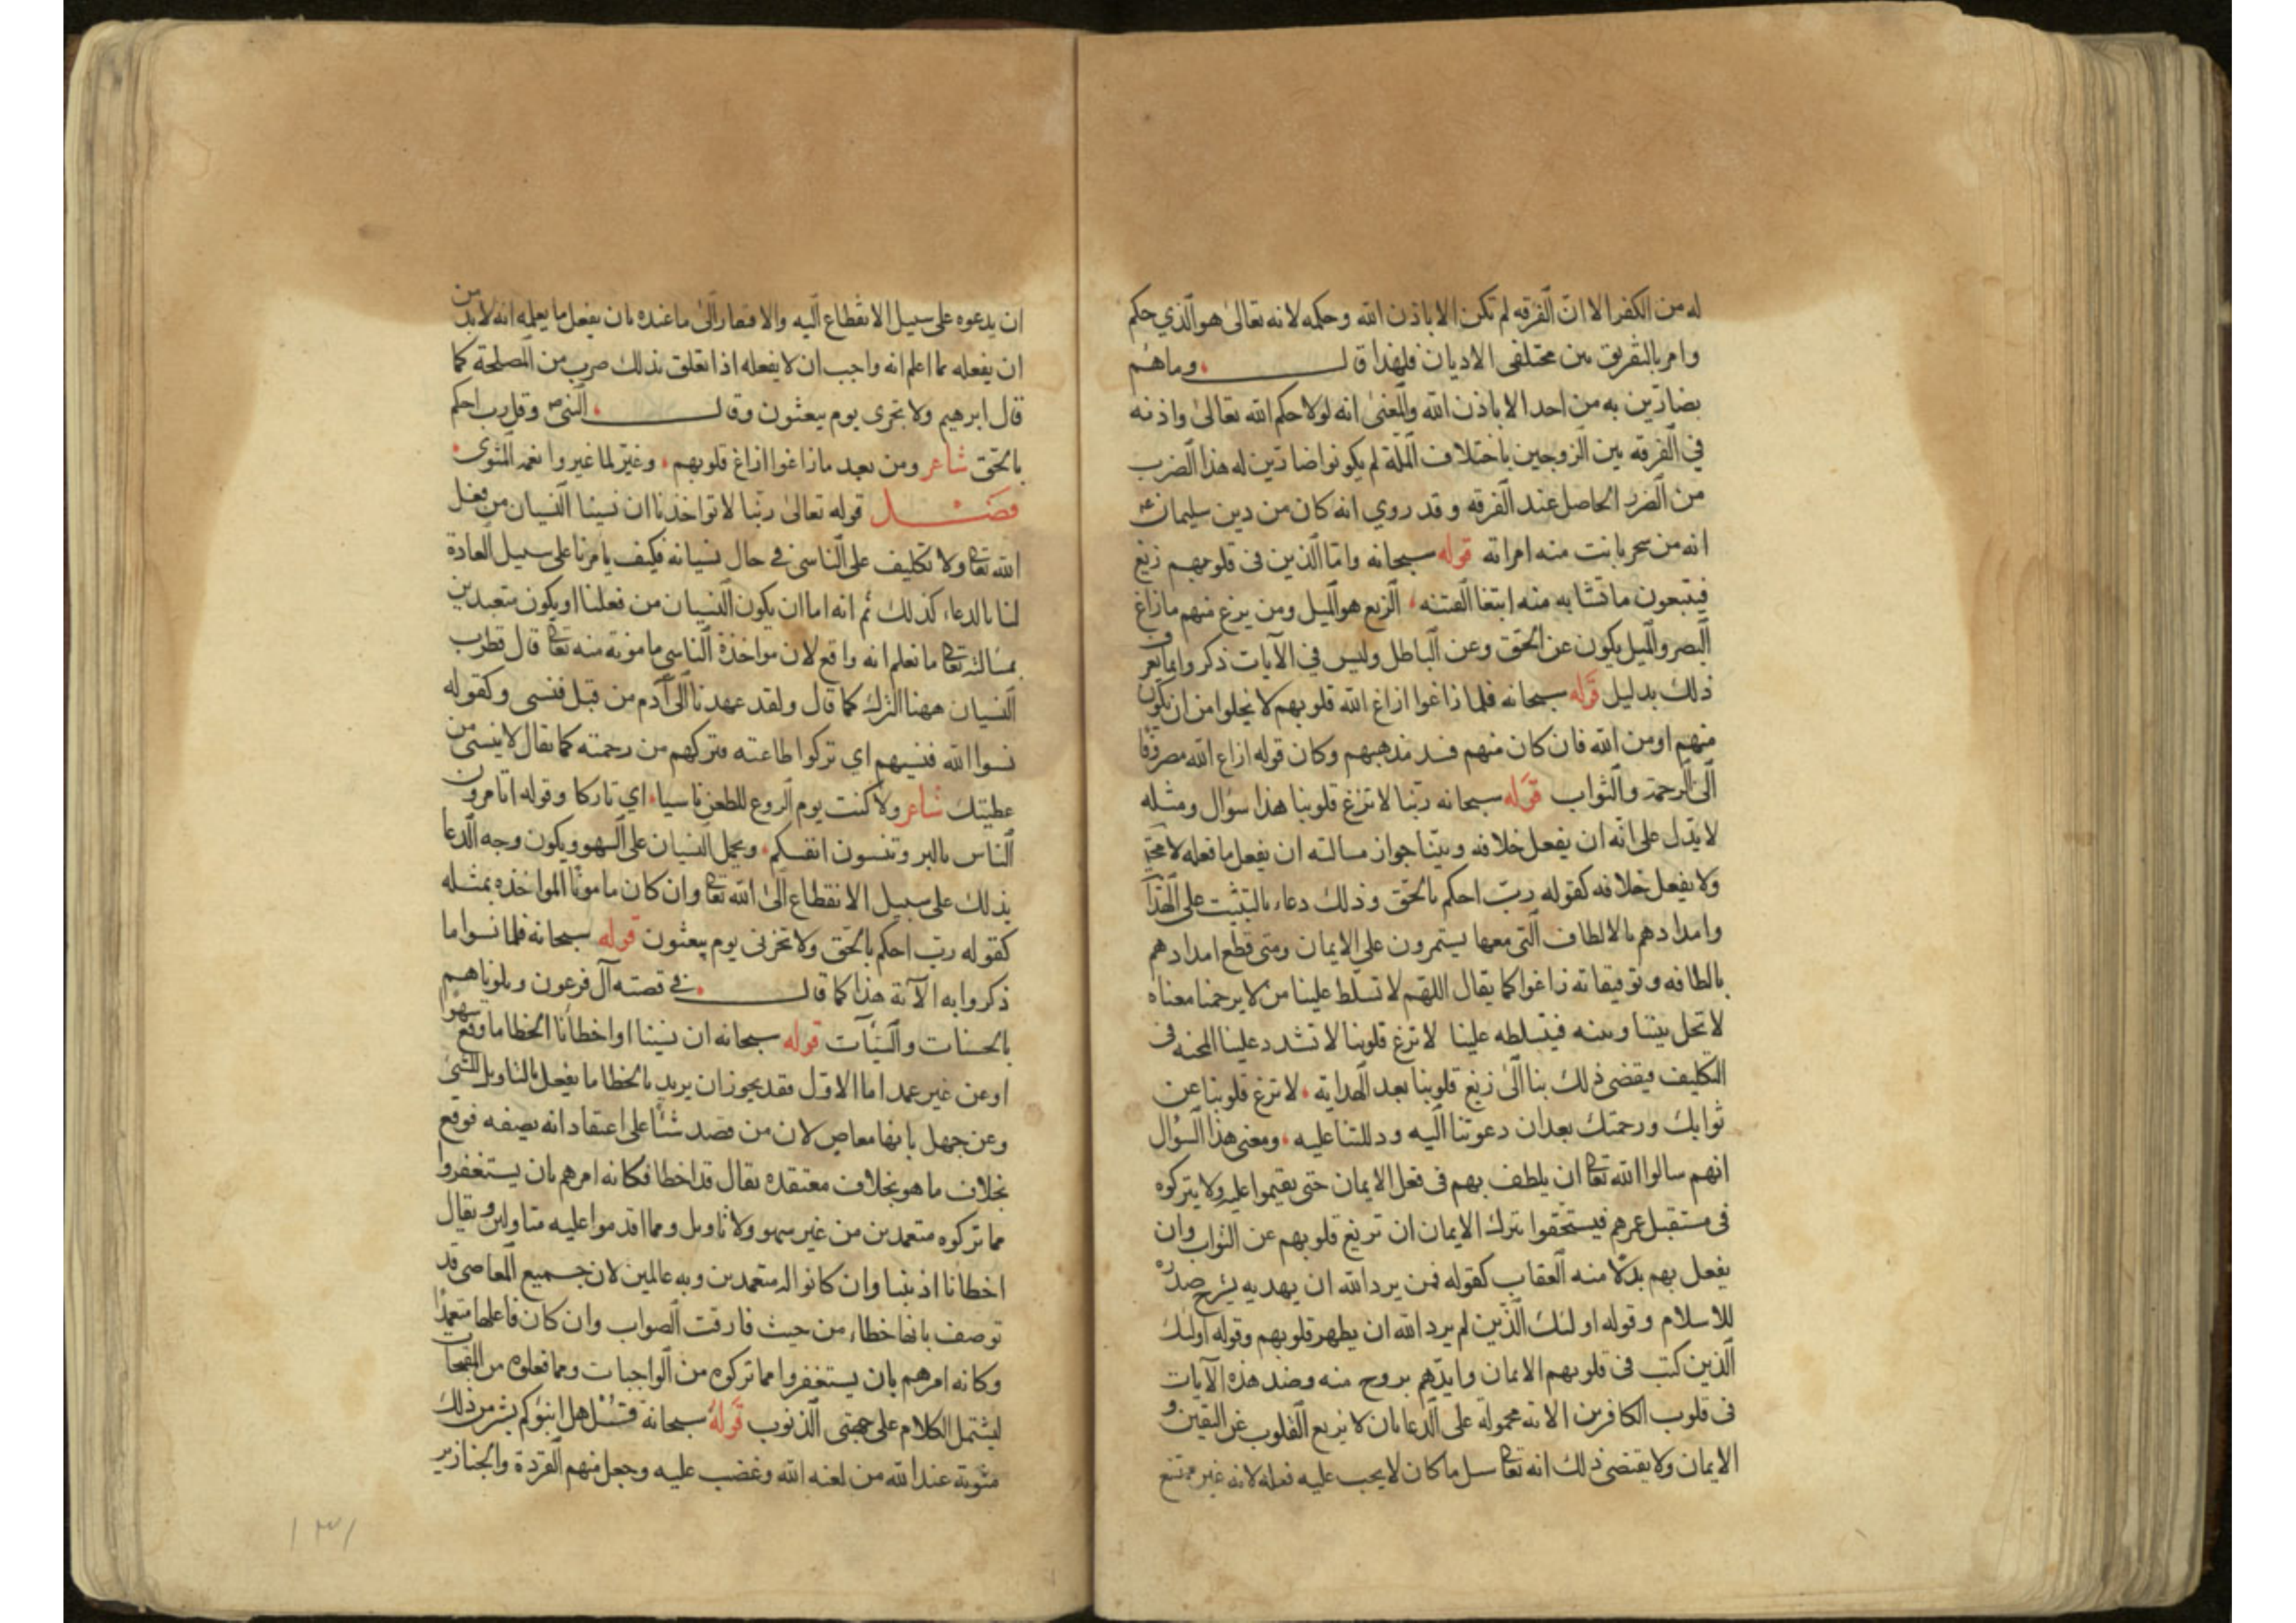 له من الكفر الا ان الفرقه لم تكن الا باذن الله وحكمه لانه تعالى هو الذي حكم
وامر بالتفريق بين مختلفى الاديان فلهذا قال وماهم
بضارين به من احد الا باذن الله والمعنى انه لولا حكم الله تعالى واذنه
في الفرقه بين الزوجين باختلاف الملة لم يكونوا ضارين له هذا الضرب
من الضرر الحاصل عند الفرقه وقد روي انه كان من دين سليمان ع
انه من سحر بانت منه امراته قوله سبحانه واما الذين فى قلوبهم زيغ
فيتبعون ما تشابه منه ابتغا الفتنه الزيغ هو الميل ومن يزغ منهم مازاغ
البصر والميل يكون عن الحق وعن الباطل وليس في الآيات ذكر وانما يعرف
ذلك بدليل قوله سبحانه فلما زاغوا ازاغ الله قلوبهم لا يخلوا من ان يكون
منهم او من الله فان كان منهم فسد مذهبهم وكان قوله ازاغ الله مصروفا
الى الرحمة والثواب قوله سبحانه ربنا لا تزغ قلوبنا هذا سؤال ومثله
لا يدل على انه ان يفعل خلافه وبينا جواز مسالته ان يفعل ما فعله لا محة
ولا يفعل خلافه كقوله رب احكم بالحق وذلك دعاء بالتثبيت على الهدا
وامدادهم بالالطاف التى معها يستمرون على الايمان ومتى قطع امدادهم
بالطافه وتوفيقاته زاغوا كما يقال اللهم لا تسلط علينا من لا يرحمنا معناه
لا تخل بيننا وبينه فيتسلطه علينا لا تزغ قلوبنا لا تشدد علينا المحنه فى
التكليف فيقضى ذلك بنا الى زيغ قلوبنا بعد الهداية لا تزغ قلوبنا عن
ثوابك ورحمتك بعد ان دعوتنا اليه ودللتنا عليه ومعنى هذا السؤال
انهم سالوا الله تعا ان يلطف بهم فى فعل الايمان حتى يقيموا عليه ولا يتركوه
فى مستقبل عمرهم فيستحقوا بترك الايمان ان تريغ قلوبهم عن الثواب وان
يفعل بهم بدلا منه العقاب كقوله فمن يرد الله ان يهديه يشرح صدره
للاسلام وقوله اولئك الذين لم يرد الله ان يطهر قلوبهم وقوله اولئك
الذين كتب فى قلوبهم الايمان وايدهم بروح منه وضد هذه الآيات
فى قلوب الكافرين الاته محمولة على الدعا بان لا يزيع القلوب عن اليقين و
الايمان ولا يقتضى ذلك انه تعا سل ما كان لا يجب عليه فعله لانه غير ممتنع
ان يدعوه على سبيل الانقطاع اليه والافتقار الى ما عنده بان يفعل ما يعلم انه لابد من
ان يفعله مما اعلم انه واجب ان لا يفعله اذا تعلق بذلك ضرب من المصلحة كما
قال ابرهيم ولا تخزى يوم يبعثون وقال النبى ص وقل رب احكم
بالحق شاعر ومن بعد ما زاغوا ازاغ قلوبهم وغير لما غيروا نعمه المثوى
فصل قوله تعالى ربنا لا تواخذنا ان نسينا النسيان من فعل
الله تعا ولا تكليف على الناسى فى حال نسيانه فكيف يامرنا على سبيل العادة
لنا بالدعاء كذلك ثم انه اما ان يكون النسيان من فعلنا او يكون متعبدين
بمسالته تعا ما نعلم انه واقع لان مواخذة الناسي مامونه منه تعا قال قطرب
النسيان ههنا الترك كما قال ولقد عهدنا الى آدم من قبل فنسى وكقوله
نسوا الله فنسيهم اي تركوا طاعته فتركهم من رحمته كما يقال لا ينسنى من
عطيتك شاعر ولا كنت يوم الروع للطعن ناسيا اي تاركا وقوله اتامرون
الناس بالبر وتنسون انفسكم ويحمل النسيان على السهو ويكون وجه الدعا
بذلك على سبيل الانقطاع الى الله تعا وان كان مامونا المواخذه بمثله
كقوله رب احكم بالحق ولا تخزنى يوم يبعثون قوله سبحانه فلما نسوا ما
ذكروا به الآية هذا كما قال فى قصته آل فرعون وبلوناهم
بالحسنات والسيآت قوله سبحانه ان نسينا او اخطأنا الخطا ما وقع سهوا
او عن غير عمد اما الاول فقد يجوز ان يريد بالخطا ما يفعل بالتاويل السيئ
وعن جهل بانها معاص لان من قصد شئا على اعتقاد انه بصفه فوقع
بخلاف ما هو بخلاف معتقده يقال قد اخطا فكانه امرهم بان يستغفروا
مما تركوه متعمدين من غير سهو ولا تاويل ومما اقدموا عليه متاولين ويقال
اخطانا اذنبنا وان كانوا له متعمدين وبه عالمين لان جميع المعاصى قد
توصف بانها خطاء من حيث فارقت الصواب وان كان فاعلها متعمدا
وكانه امرهم بان يستغفروا مما تركوه من الواجبات ومما فعلوه من المقبحات
ليشتمل الكلام على جهتى الذنوب قوله سبحانه قل هل انبئوكم بشر من ذلك
مثوبة عند الله من لعنه الله وغضب عليه وجعل منهم القردة والخنازير
١٣١